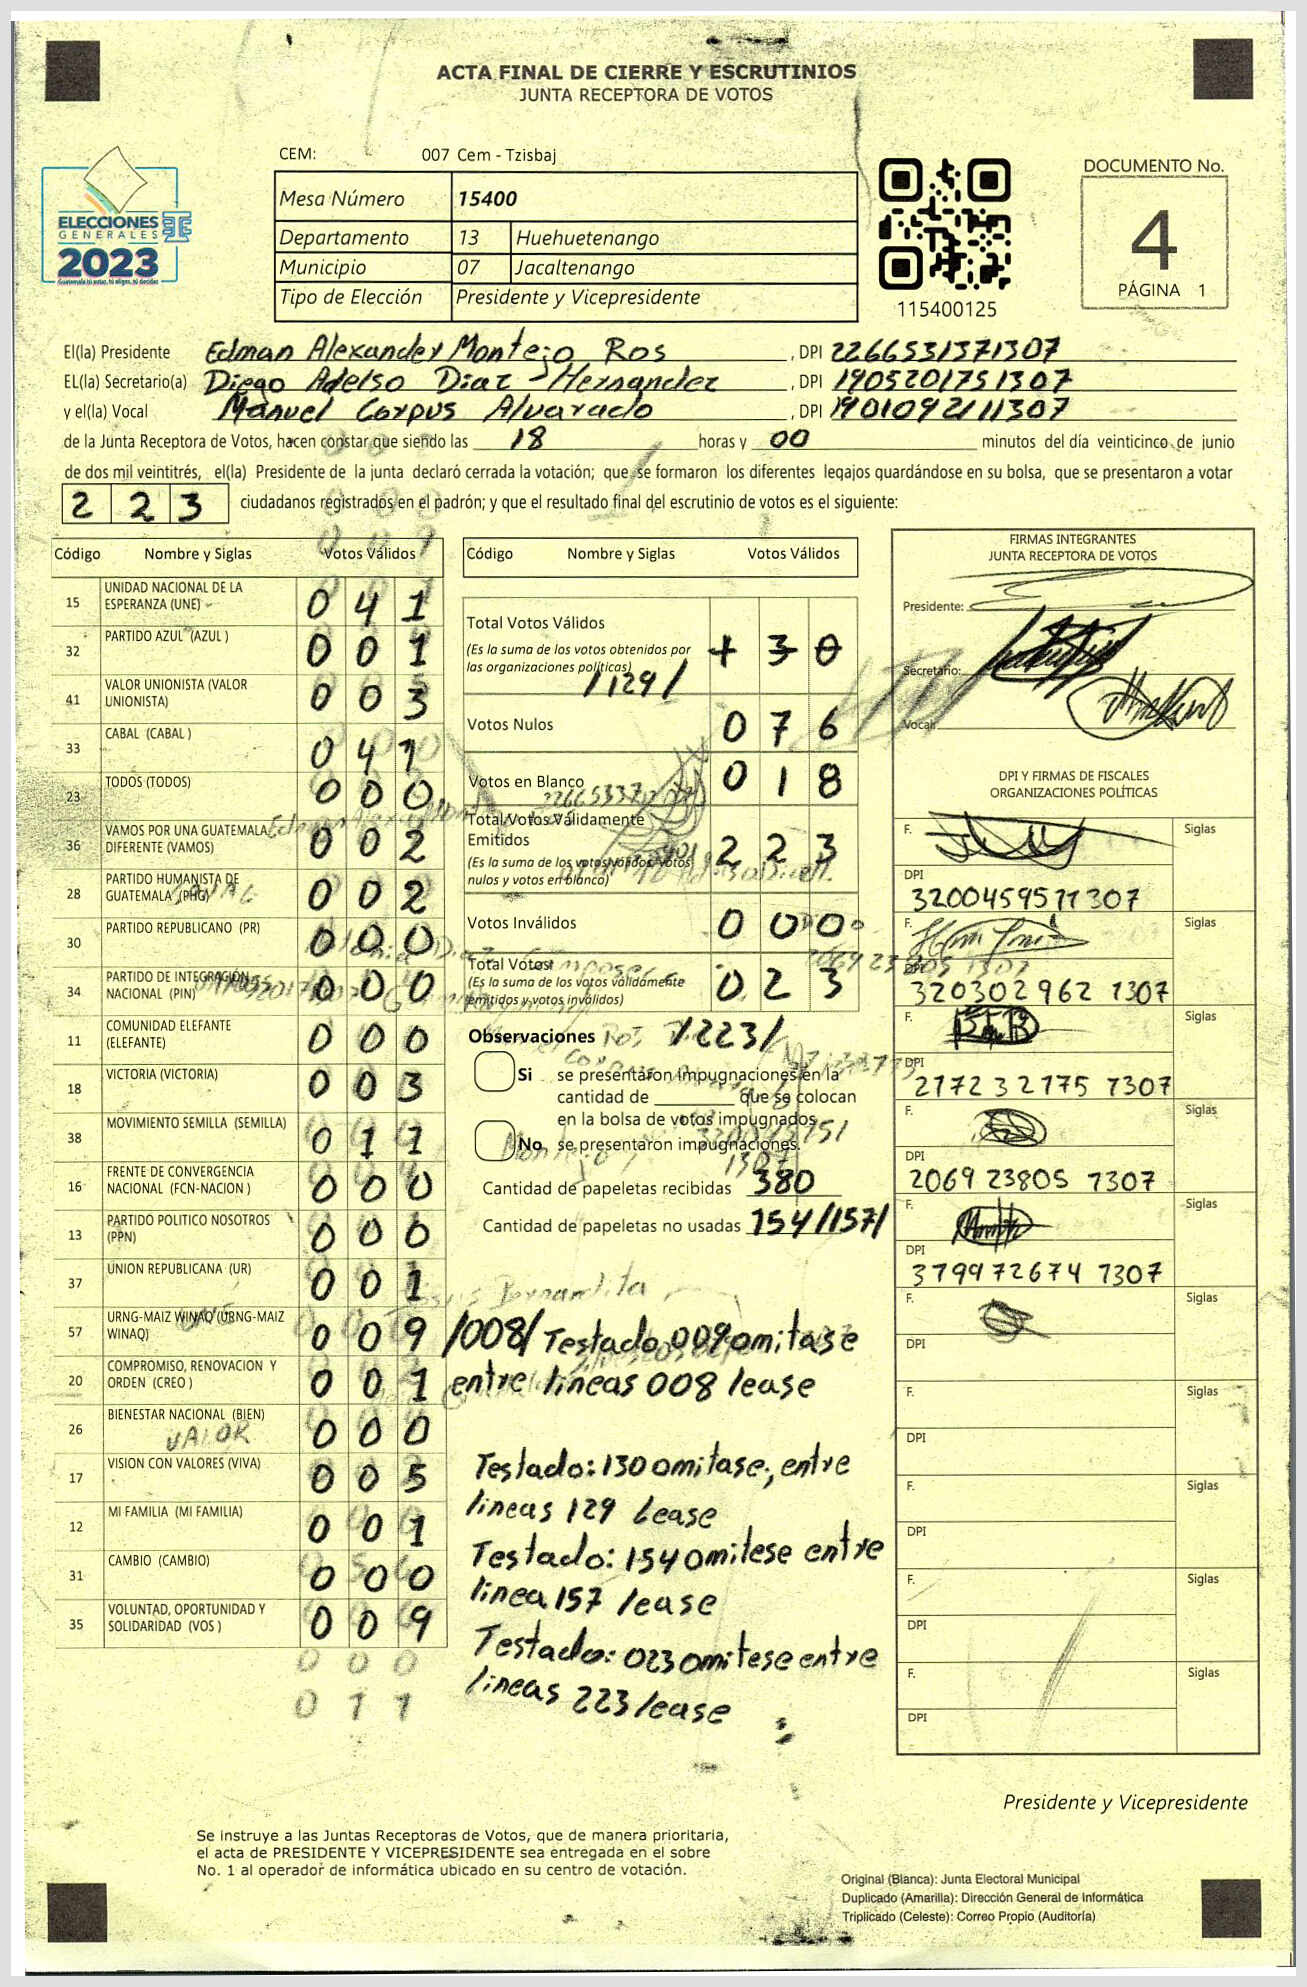 ACTA FINAL DE CIERRE Y ESCRUTINIOS
JUNTA RECEPTORA DE VOTOS
CEM: 007 Cem - Tzisbaj
ELECCIONES
GENERALES
2023
Mesa Número 15400
Departamento 13 Huehuetenango
Municipio 07 Jacaltenango
Tipo de Elección Presidente y Vicepresidente
115400125
DOCUMENTO No.
4
PÁGINA 1
El(la) Presidente Edman Alexander Montejo Ros, DPI 2266531371307
EL(la) Secretario(a) Diego Adelso Diaz Hernandez, DPI 1905201751307
y el(la) Vocal Manuel Corpus Alvarado, DPI 1901092111307
de la Junta Receptora de Votos, hacen constar que siendo las 18 horas y 00 minutos del día veinticinco de junio
de dos mil veintitrés, el(la) Presidente de la junta declaró cerrada la votación; que se formaron los diferentes legajos guardándose en su bolsa, que se presentaron a votar
2 2 3 ciudadanos registrados en el padrón; y que el resultado final del escrutinio de votos es el siguiente:
Código Nombre y Siglas Votos Válidos
15 UNIDAD NACIONAL DE LA ESPERANZA (UNE) 0 4 1
32 PARTIDO AZUL (AZUL ) 0 0 1
41 VALOR UNIONISTA (VALOR UNIONISTA) 0 0 3
33 CABAL (CABAL ) 0 4 1
23 TODOS (TODOS) 0 0 0
36 VAMOS POR UNA GUATEMALA DIFERENTE (VAMOS) 0 0 2
28 PARTIDO HUMANISTA DE GUATEMALA (PHG) 0 0 2
30 PARTIDO REPUBLICANO (PR) 0 0 0
34 PARTIDO DE INTEGRACIÓN NACIONAL (PIN) 0 0 0
11 COMUNIDAD ELEFANTE (ELEFANTE) 0 0 0
18 VICTORIA (VICTORIA) 0 0 3
38 MOVIMIENTO SEMILLA (SEMILLA) 0 1 1
16 FRENTE DE CONVERGENCIA NACIONAL (FCN-NACION ) 0 0 0
13 PARTIDO POLITICO NOSOTROS (PPN) 0 0 0
37 UNION REPUBLICANA (UR) 0 0 1
57 URNG-MAIZ WINAQ (URNG-MAIZ WINAQ) 0 0 9 /008/ Testado 009 omitase
20 COMPROMISO, RENOVACION Y ORDEN (CREO ) 0 0 1 entre líneas 008 lease
26 BIENESTAR NACIONAL (BIEN) 0 0 0
VALOR
17 VISION CON VALORES (VIVA) 0 0 5
12 MI FAMILIA (MI FAMILIA) 0 0 1
31 CAMBIO (CAMBIO) 0 0 0
35 VOLUNTAD, OPORTUNIDAD Y SOLIDARIDAD (VOS ) 0 0 9
0 0 0
0 1 1
Código Nombre y Siglas Votos Válidos
Total Votos Válidos 1 3 0
(Es la suma de los votos obtenidos por
las organizaciones políticas)
/129/
Votos Nulos 0 7 6
Votos en Blanco 0 1 8
Total Votos Válidamente
Emitidos 2 2 3
(Es la suma de los votos válidos, votos
nulos y votos en blanco)
Votos Inválidos 0 0 0
Total Votos 0 2 3
(Es la suma de los votos válidamente
emitidos y votos inválidos)
Observaciones /223/
Si se presentaron impugnaciones en la
cantidad de ________ que se colocan
en la bolsa de votos impugnados
No se presentaron impugnaciones.
Cantidad de papeletas recibidas 380
Cantidad de papeletas no usadas 154/157/
Testado: 130 omitase, entre
lineas 129 Lease
Testado: 154 omitese entre
linea 157 lease
Testado: 023 omitese entre
lineas 223 lease
FIRMAS INTEGRANTES
JUNTA RECEPTORA DE VOTOS
Presidente:
Secretario:
Vocal:
DPI Y FIRMAS DE FISCALES
ORGANIZACIONES POLÍTICAS
F. Siglas
DPI 3200459571307
F. Siglas
DPI 320302962 1307
F. Siglas
DPI 2172 32175 1307
F. Siglas
DPI 2069 23805 1307
F. Siglas
DPI 379972674 1307
F. Siglas
DPI
F. Siglas
DPI
F. Siglas
DPI
F. Siglas
DPI
F. Siglas
DPI
Presidente y Vicepresidente
Se instruye a las Juntas Receptoras de Votos, que de manera prioritaria,
el acta de PRESIDENTE Y VICEPRESIDENTE sea entregada en el sobre
No. 1 al operador de informática ubicado en su centro de votación.
Original (Blanca): Junta Electoral Municipal
Duplicado (Amarilla): Dirección General de Informática
Triplicado (Celeste): Correo Propio (Auditoría)